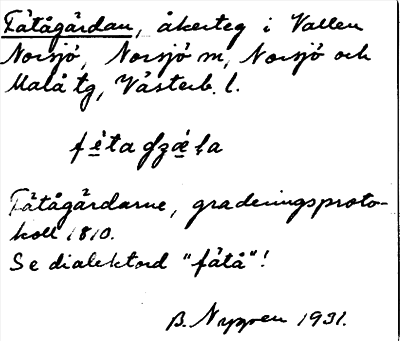 Fätågärdan, åkerteg i Vallen
Norsjö, Norsjö m, Norsjö och
Malå tg, Västerb. l.
Fätågärdarne, graderingsproto-
koll 1810.
Se dialektord "fätå"!
B. Nygren 1931.